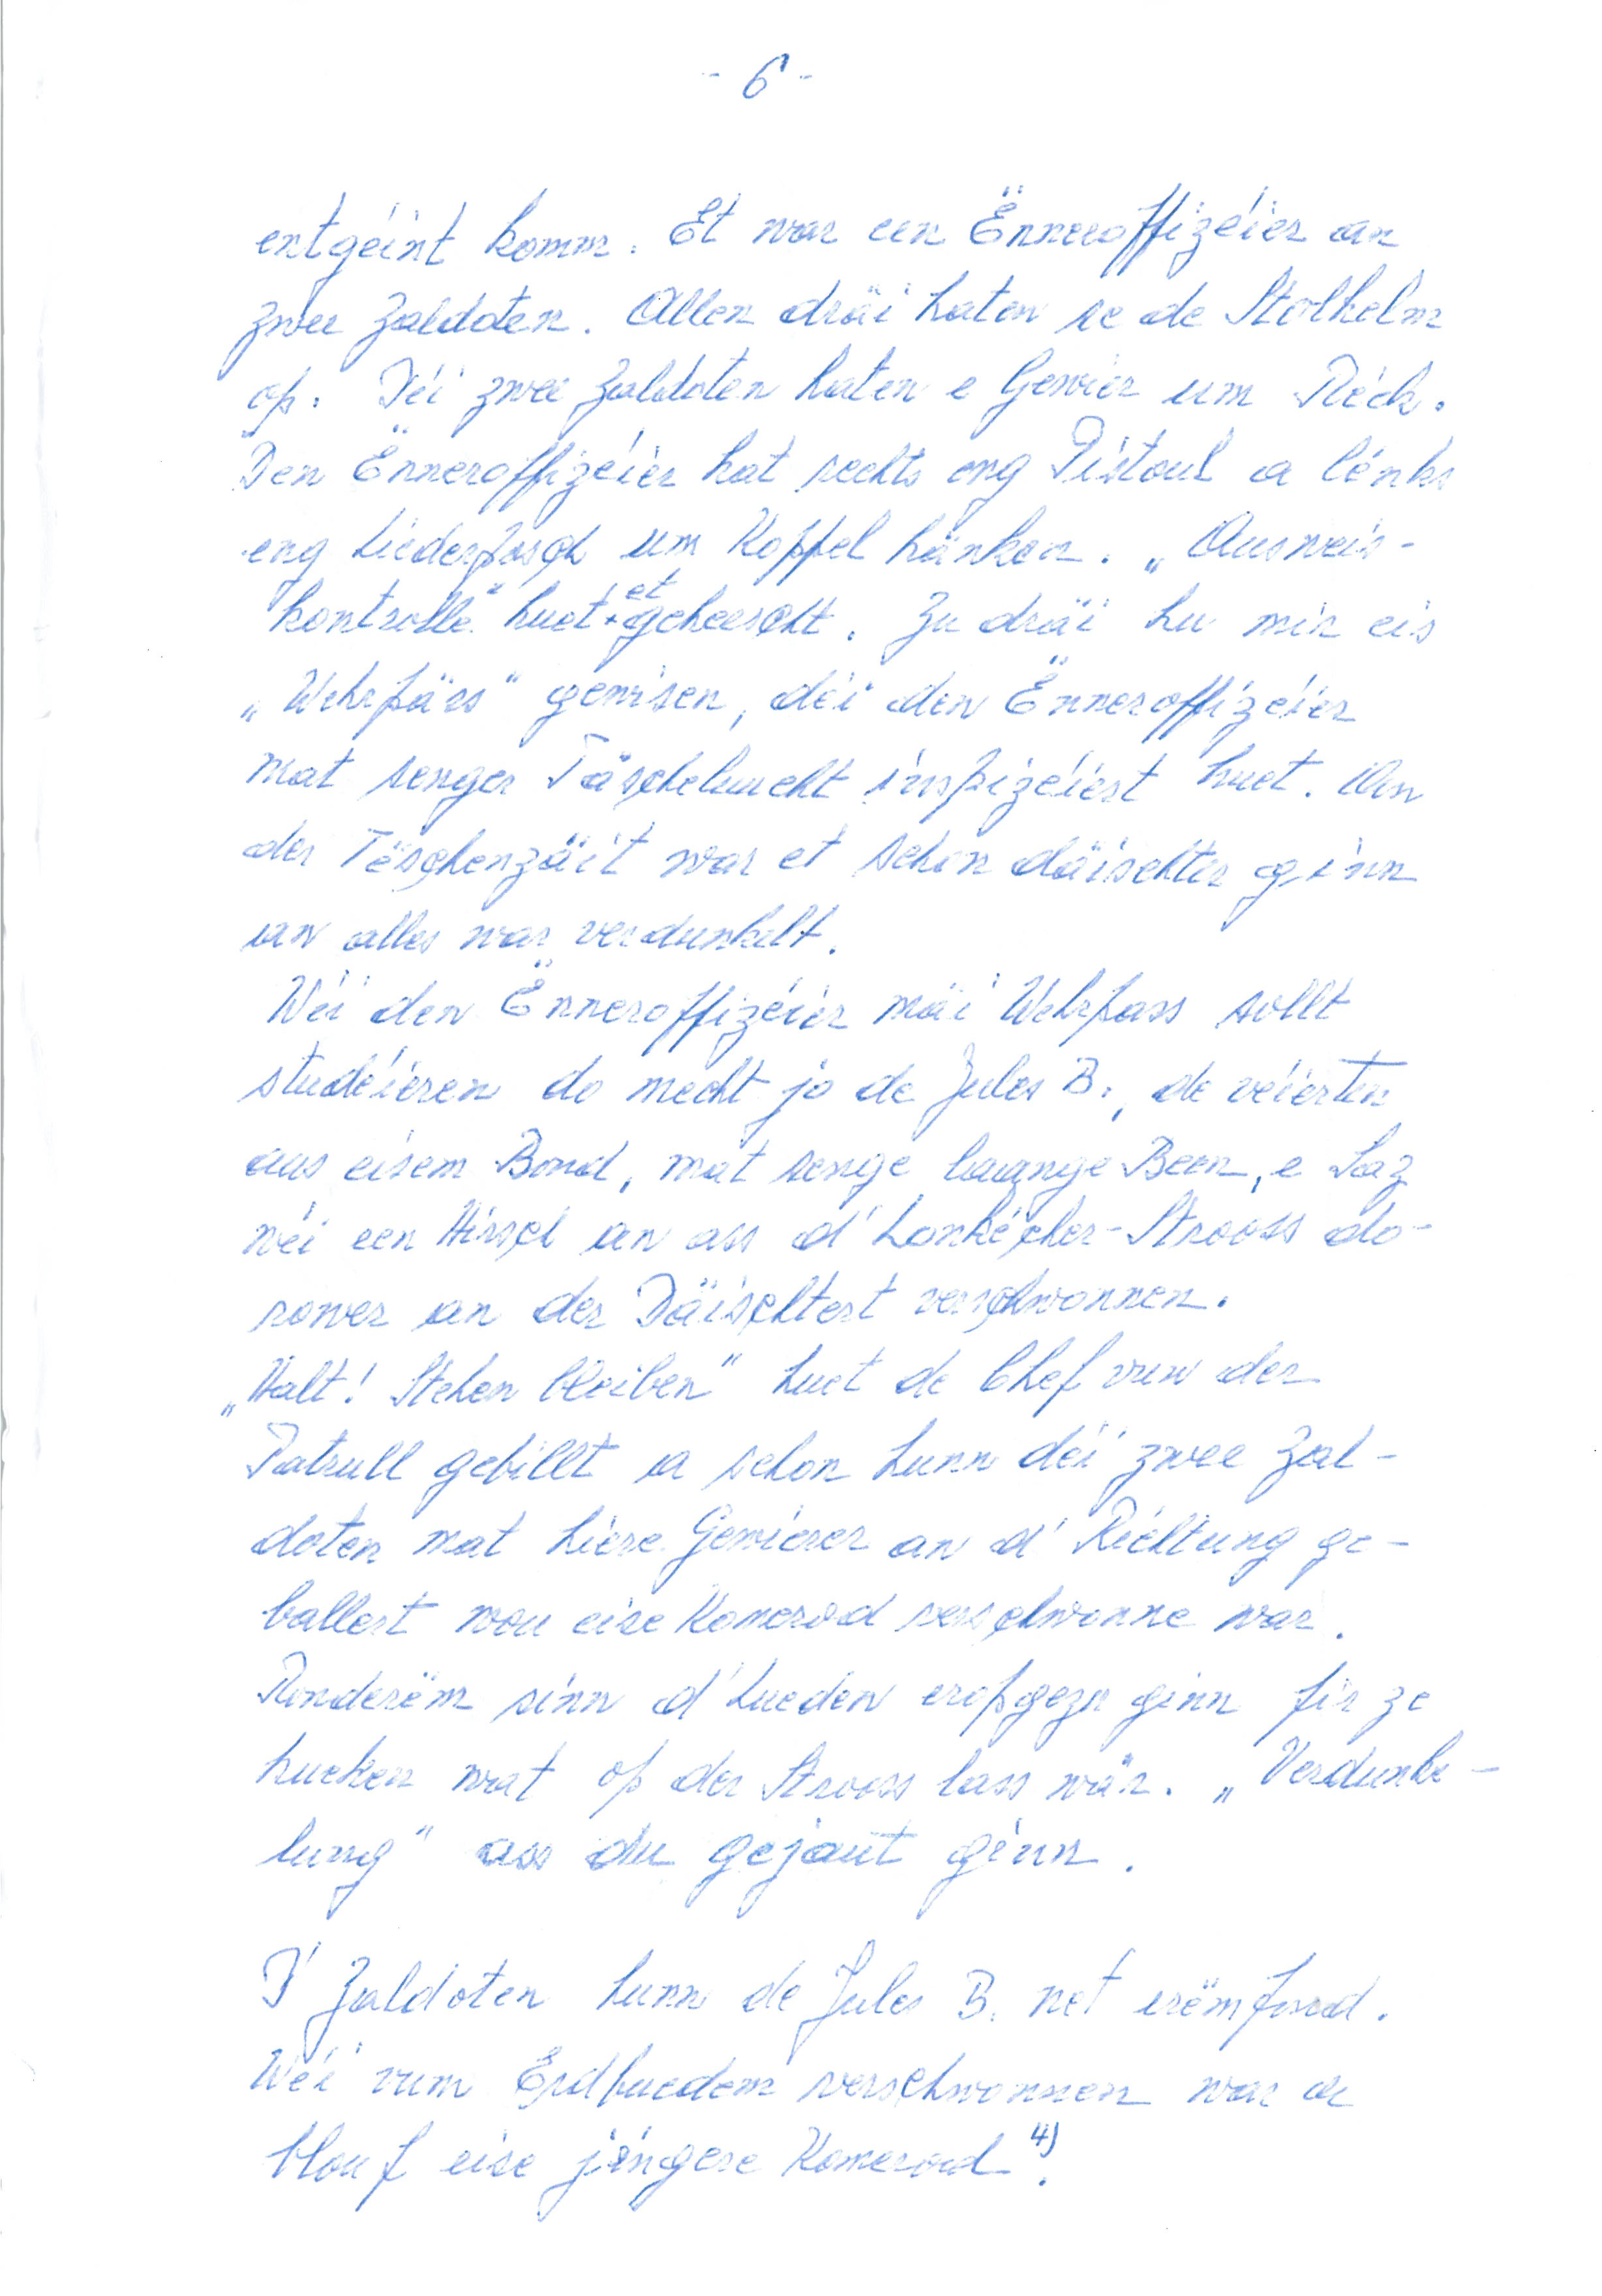 - 6 -
entgéint komm. Et war een Ënneroffizéier an
zwee Zaldoten. Allen dräi haten se de Stolhelm
op. Déi zwee Zaldoten haten e Gewier um Réck.
Den Ënneroffizéier hat rechts eng Pistoul a lénks
eng Liedertäsch um Koppel hänken. „Ausweis-
kontrolle" huet et geheescht. Zu dräi hu mir eis
„Wehrpäss" gewisen, déi den Ënneroffizéier
mat senger Täscheluucht inspizéiert huet. An
der Tëschenzäit war et schon däischter ginn
an alles war verdunkelt.
Wéi den Ënneroffizéier mäi Wehrpass sollt
studéieren do mecht jo de Jules B., de véierten
aus eisem Bond, mat senge laange Been, e Saz
wéi een Hirsch an ass d'Lonkécher-Strooss do-
rower an der Däischtert verschwonnen.
„Halt! Stehen bleiben" huet de Chef vun der
Patrull gebillt a schon hunn déi zwee Zal-
doten mat hiere Gewierer an d'Richtung ge-
ballert wou eise Komerod verschwonne war.
Ronderëm sinn d'Lueden eropgezu ginn fir ze
kucken wat op der Strooss lass wär. „Verdunke-
lung" ass du gejaut ginn.
D'Zaldoten hunn de Jules B. net erëmfond.
Wéi vum Erdbuedem verschwonnen war a
blouf eise jéngere Komerod 4).